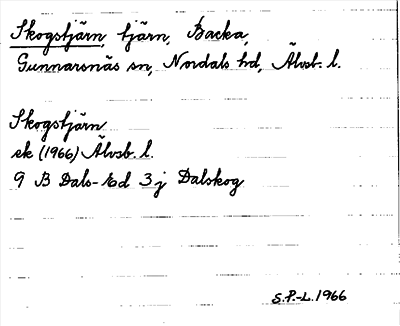 Skogstjärn, tjärn, Backa,
Gunnarsnäs sn, Nordals hd, Älvsb. l.
Skogstjärn
ek (1966) Älvsb. l.
9 B Dals-Ed 3j Dalskog
S.P.-L. 1966